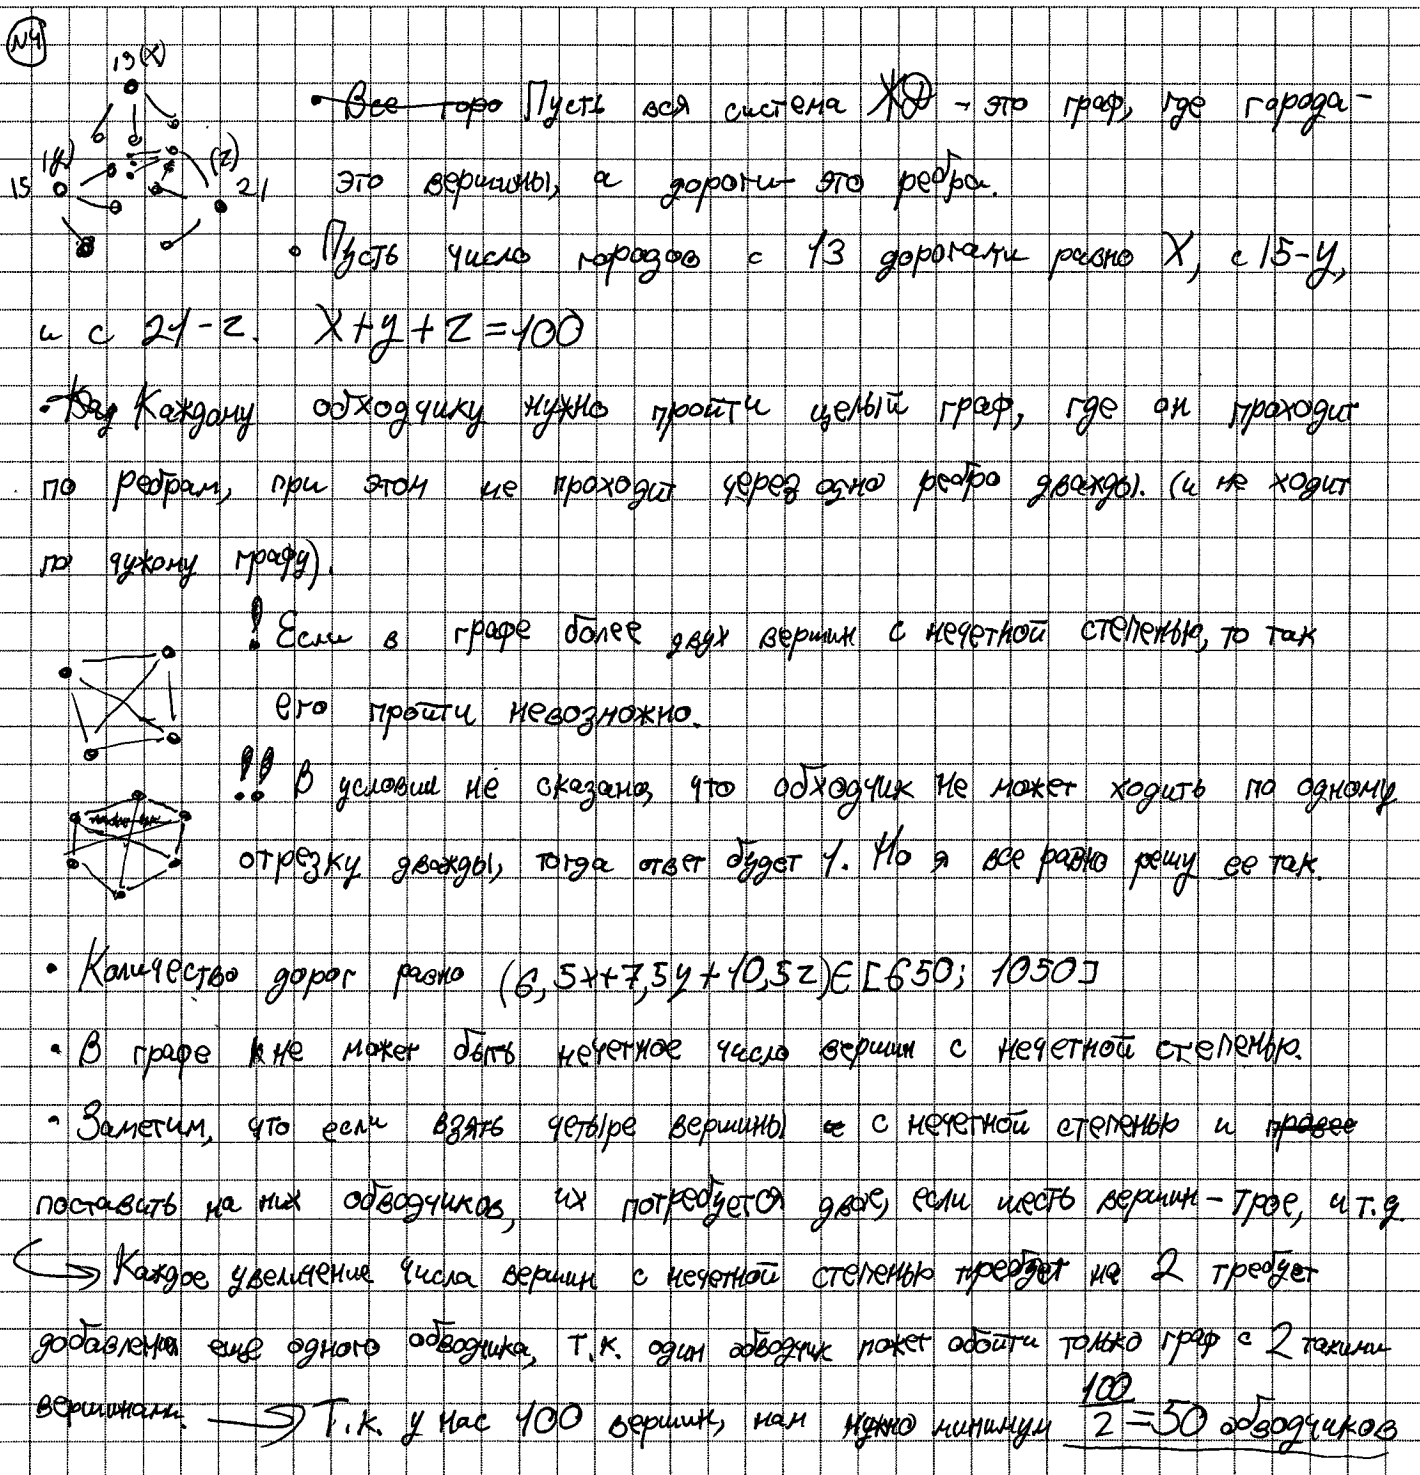 №4
13(x)
• Все горо Пусть вся система ЖД - это граф, где города -
15 (y) (z) 21 это вершины, а дороги - это ребра.
• Пусть число городов с 13 дорогами равно X, с 15-y,
и с 21-z. X+y+z=100
• Каждому обходчику нужно пройти целый граф, где он проходит
по ребрам, при этом не проходит через одно ребро дважды. (и не ходит
по чужому графу).
! Если в графе более двух вершин с нечетной степенью, то так
его пройти невозможно.
!! В условии не сказано, что обходчик не может ходить по одному
отрезку дважды, тогда ответ будет 1. Но я все равно решу ее так.
• Количество дорог равно (6,5x+7,5y+10,5z)∈[650; 1050]
• В графе не может быть нечетное число вершин с нечетной степенью.
• Заметим, что если взять четыре вершины с нечетной степенью и
поставить на них обводчиков, их потребуется двое, если шесть вершин - трое, и т.д.
→ Каждое увеличение числа вершин с нечетной степенью требует на 2 требует
добавления еще одного обводчика, т.к. один обводчик может обойти только граф с 2 такими
вершинами. → Т.к. у нас 100 вершин, нам нужно минимум 100/2=50 обводчиков